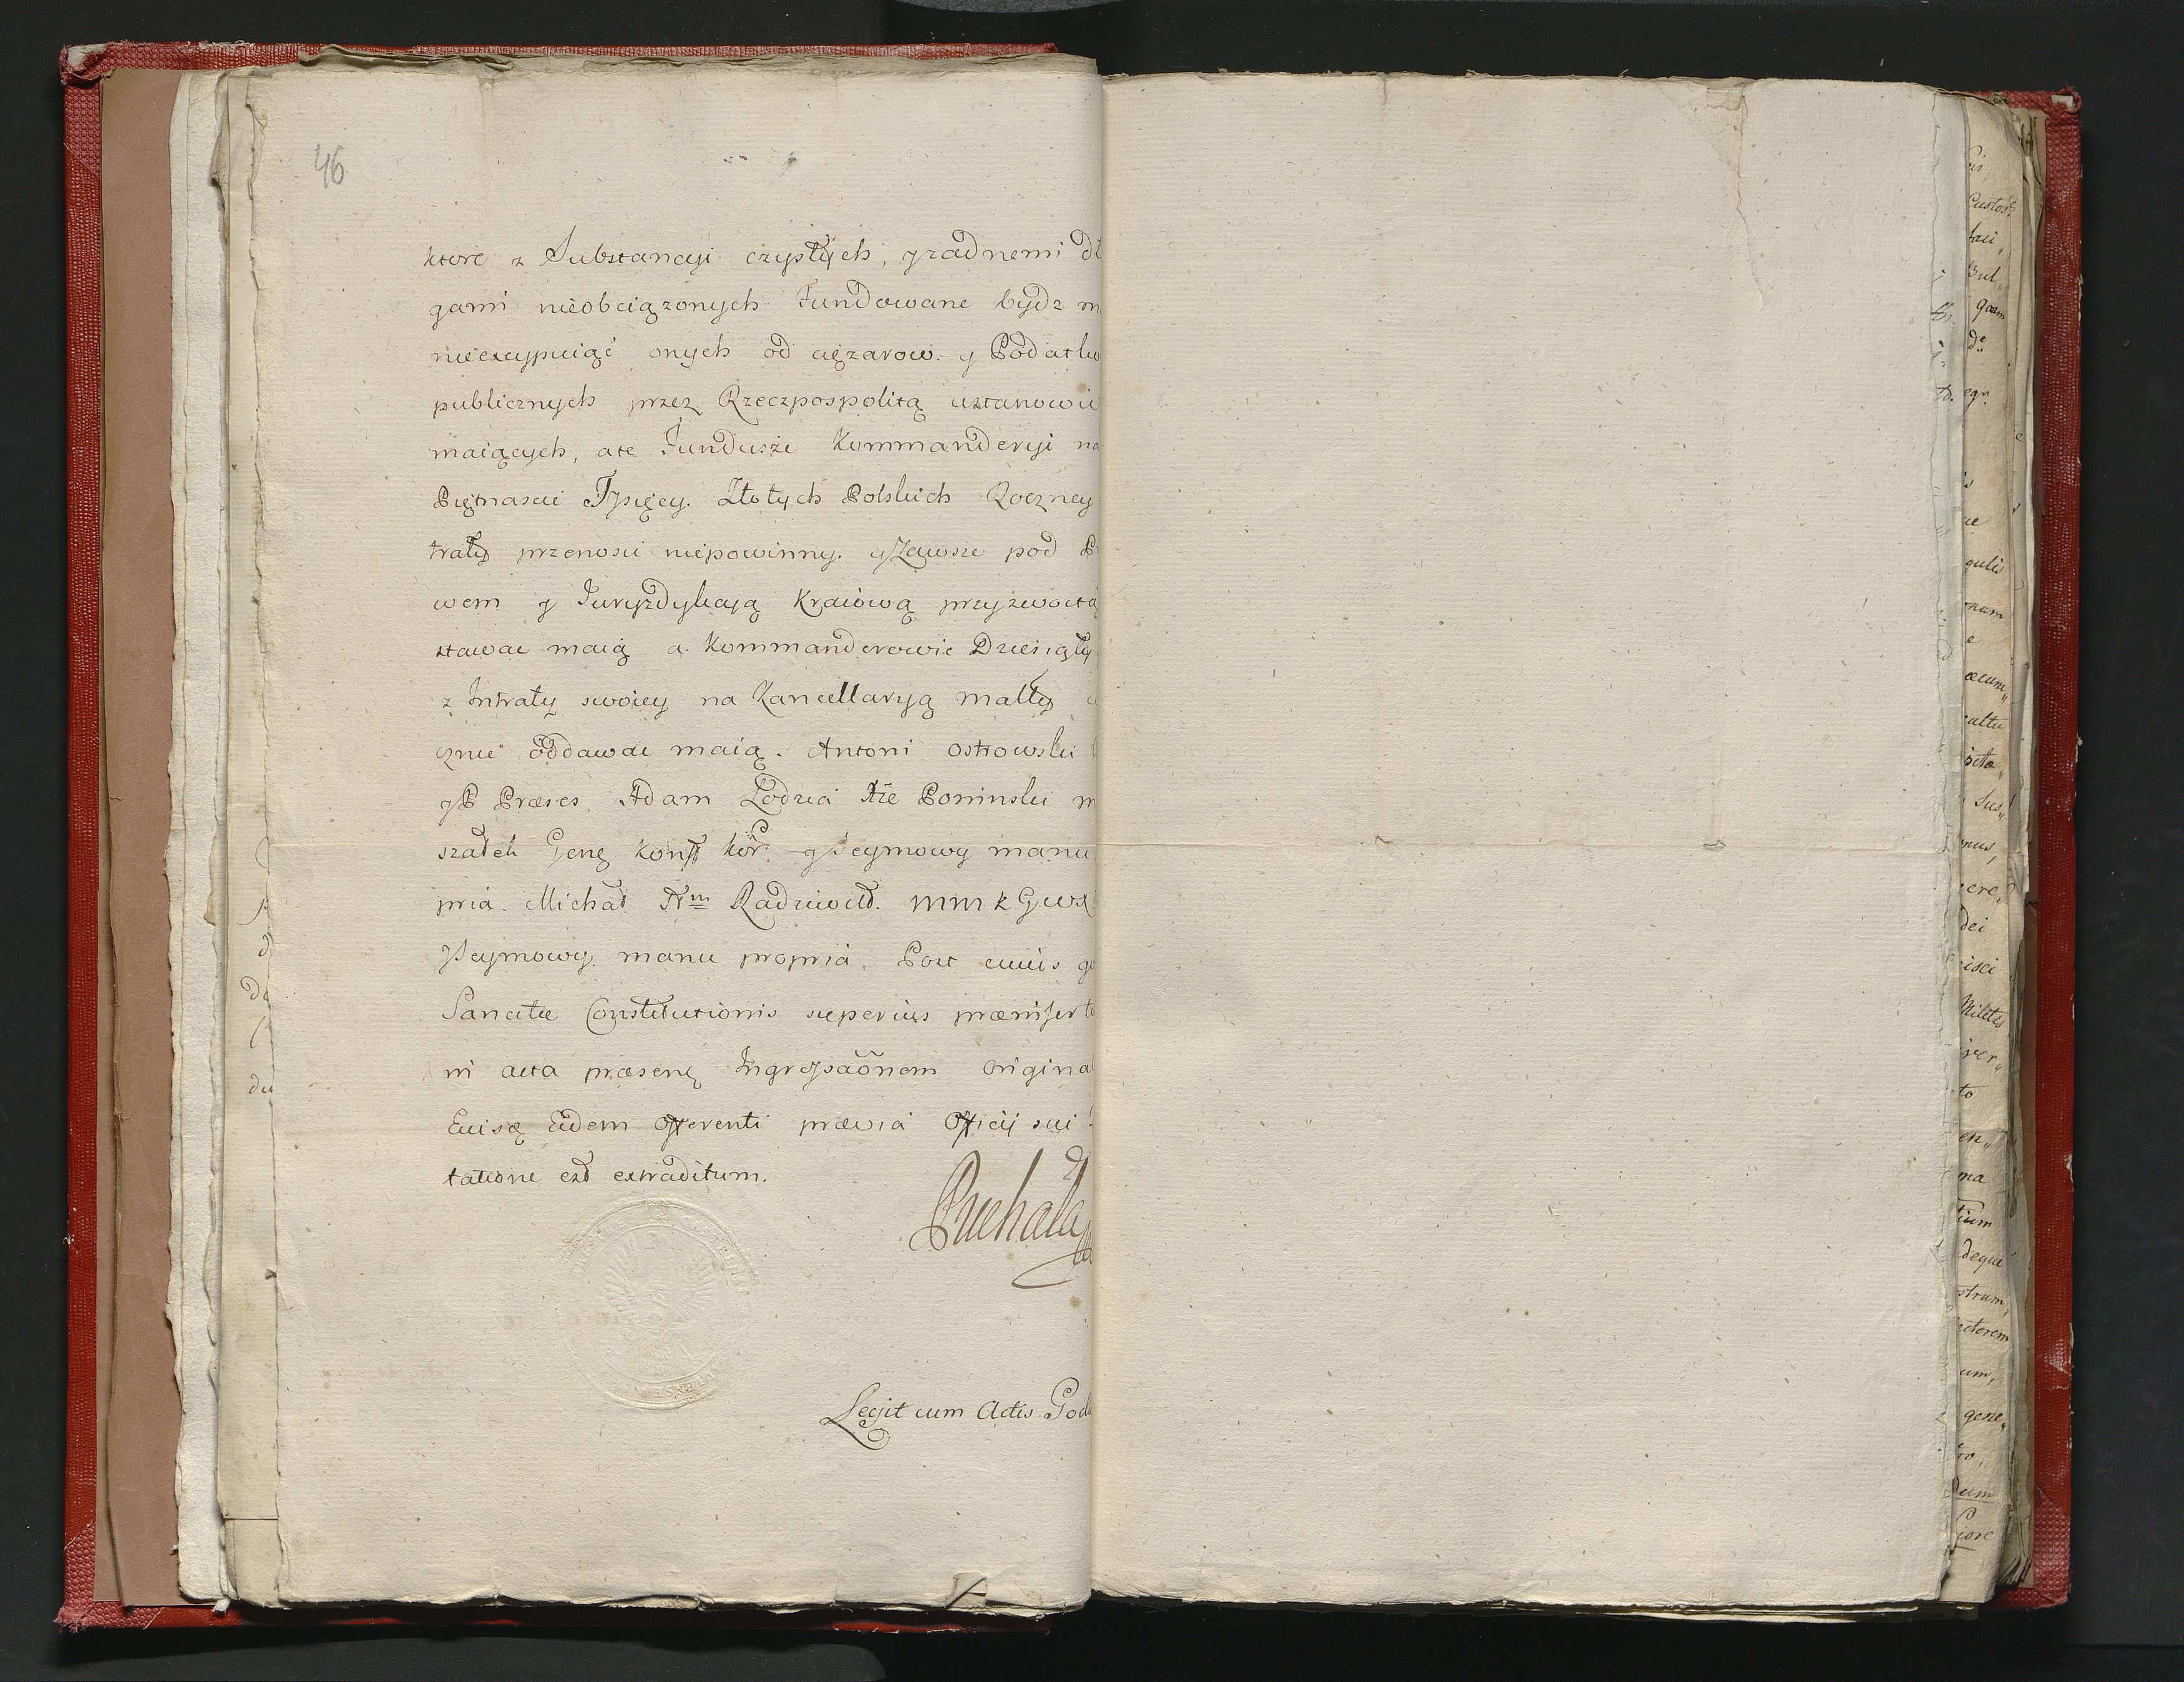 46
ktore z Substancyi czystych, y zadnemi dł
gami nieobciązonych Fundowane bydz m
nieexcypuiąć onych od cięzarow y Podatko
publicznych przez Rzeczpospolitą ustanowio
maiących, a te Fundusze Kommanderyi na
Piętnascie Tysięcy Złotych Polskich Roczney
traty przenosić niepowinny. y Zawsze pod Pr
wem y Juryzdykcyą Kraiową przyzwoitą
stawac maią a Kommanderowie Dziesiąty
z Intraty swoiey na Kancellaryą malty
cznie oddawac maią. Antoni Ostrowski
y P Præses. Adam Łodzia Xże Poninski m
szałek Gene Konf Kor. y Seymowy manu
pria. Michał Radziwiłł. m m k G W X
y Seymowy. manu propria. Post cuius
Sancitæ Constitutionis superius præinserta
in acta præsen Ingrossaõnem Origina
Eidem offerenti prævia Officij sui
tatione est extraditum.
Puchala
Legit cum Actis God